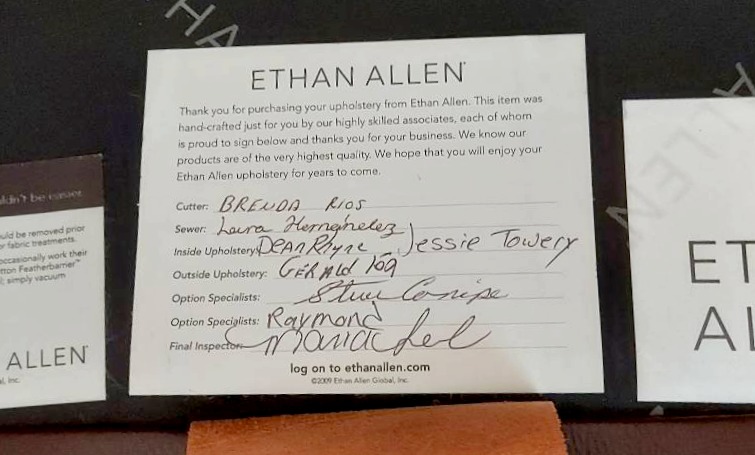 ETHAN ALLEN
ETHAN ALLEN
Thank you for purchasing your upholstery from Ethan Allen. This item was
hand-crafted just for you by our highly skilled associates, each of whom
is proud to sign below and thanks you for your business. We know our
products are of the very highest quality. We hope that you will enjoy your
Ethan Allen upholstery for years to come.
Cutter: BRENDA RIOS
Sewer: Laura
Inside Upholstery: DEAN Jessie Towery
Outside Upholstery: GERALD
Option Specialists: Steve
Option Specialists: Raymond
Final Inspector:
log on to ethanallen.com
©2009 Ethan Allen Global, Inc.
uldn't be easier
uld be removed prior
r fabric treatments.
occasionally work their
tton Featherbarrier™
l; simply vacuum
ALLEN
l, Inc.
ET
AL